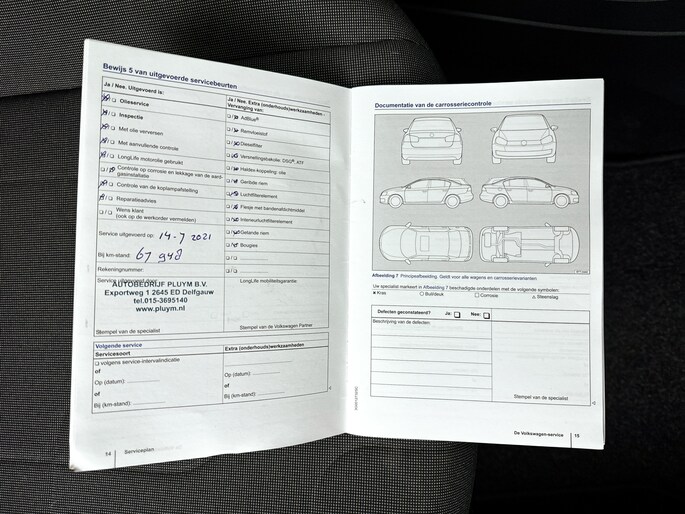 Bewijs 5 van uitgevoerde servicebeurten
Ja / Nee. Uitgevoerd is:
Olieservice
Inspectie
Met olie verversen
Met aanvullende controle
LongLife motorolie gebruikt
Controle op corrosie en lekkage van de aard-
gasinstallatie
Controle van de koplampafstelling
Reparatieadvies
Wens klant
(ook op de werkorder vermelden)
Service uitgevoerd op: 14-7 2021
Bij km-stand: 67 948
Rekeningnummer:
Service uitgevoerd door:
AUTOBEDRIJF PLUYM B.V.
Exportweg 1 2645 ED Delfgauw
tel.015-3695140
www.pluym.nl
Stempel van de specialist
Ja / Nee. Extra (onderhouds)werkzaamheden -
Vervanging van:
AdBlue®
Remvloeistof
Dieselfilter
Versnellingsbakolie: DSG®, ATF
Haldex-koppeling: olie
Geribde riem
Luchtfilterelement
Flesje met bandenafdichtmiddel
Interieurluchtfilterelement
Getande riem
Bougies
LongLife mobiliteitsgarantie:
Stempel van de Volkswagen Partner
Volgende service
Servicesoort
Extra (onderhouds)werkzaamheden
volgens service-intervalindicatie
of
Op (datum):
of
Bij (km-stand):
Op (datum):
of
Bij (km-stand):
14
Serviceplan
Documentatie van de carrosseriecontrole
Afbeelding 7 Principeafbeelding. Geldt voor alle wagens en carrosserievarianten
Uw specialist markeert in Afbeelding 7 beschadigde onderdelen met de volgende symbolen:
Kras
Buil/deuk
Corrosie
Steenslag
Defecten geconstateerd? Ja: Nee:
Beschrijving van de defecten:
Stempel van de specialist
De Volkswagen-service
15